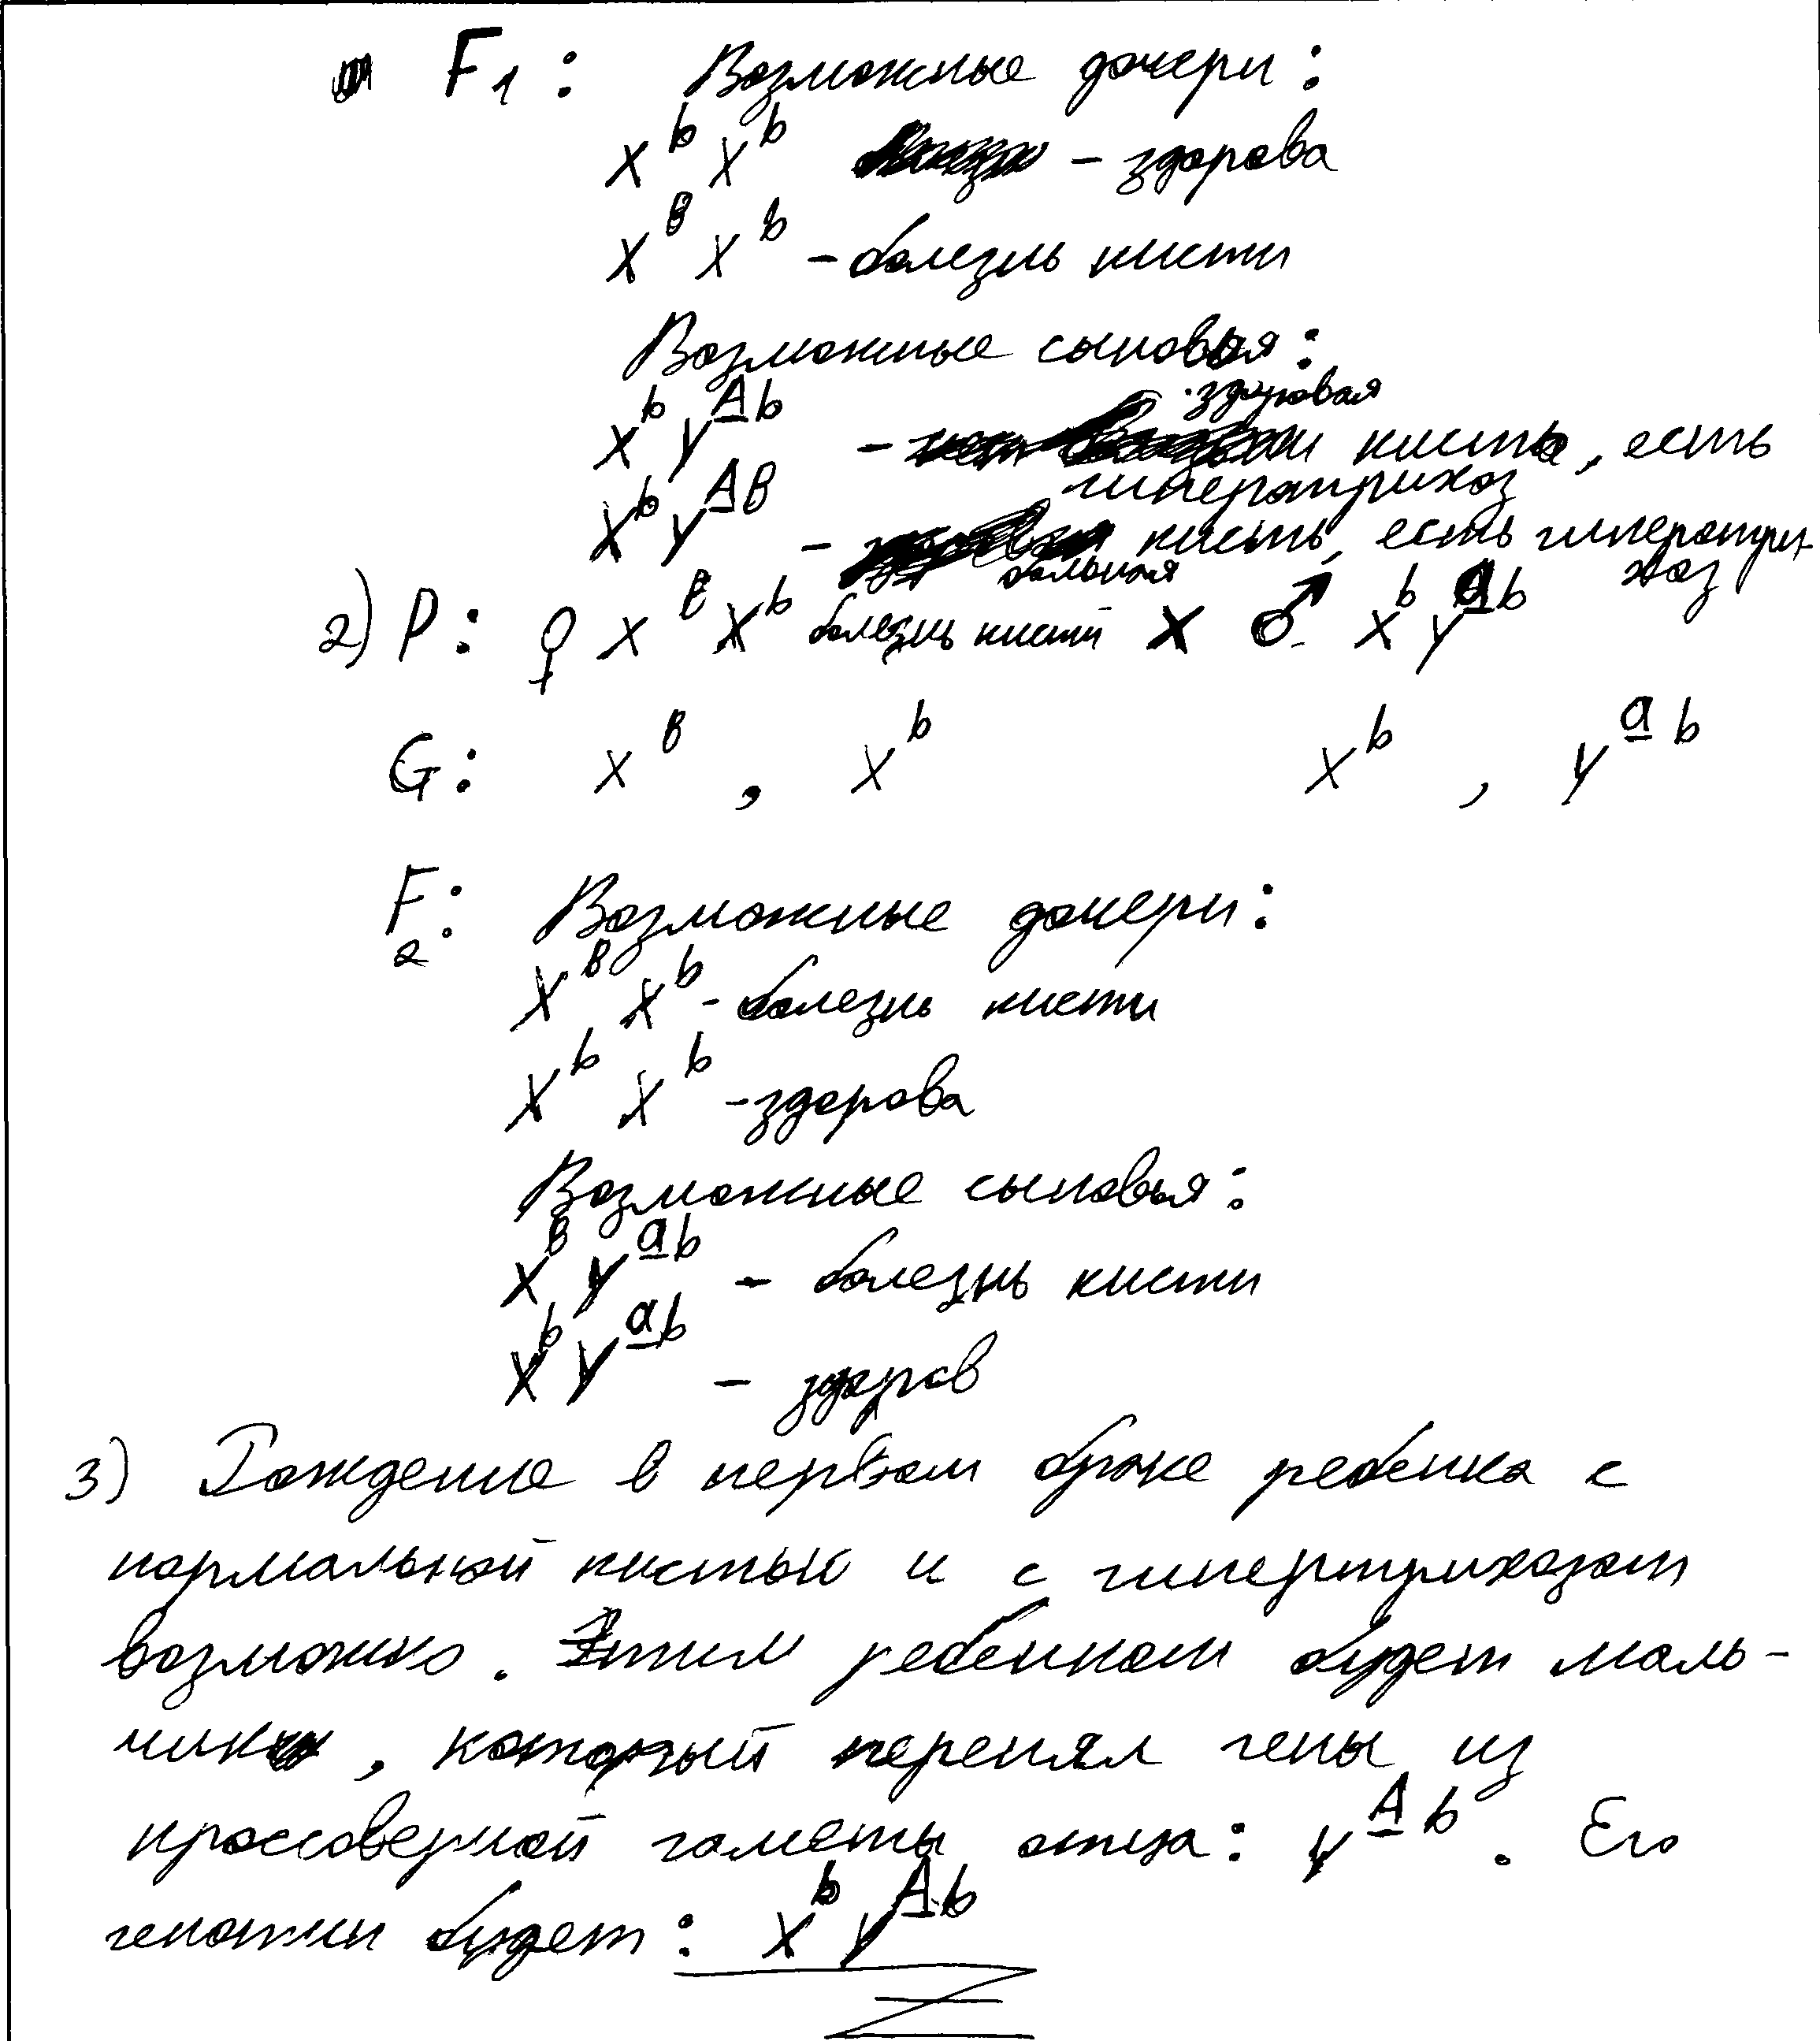 F₁: Возможные дочери:
X^b X^b – здорова
X^B X^b – болезнь кисти
Возможные сыновья:
X^b Y^Ab – здоровая кисть, есть гипертрихоз
X^b Y^AB – больная кисть, есть гипертрихоз
2) P: ♀ X^B X^b болезнь кисти × ♂ X^b Y^ab
G: X^B , X^b X^b , Y^ab
F₂: Возможные дочери:
X^B X^b - болезнь кисти
X^b X^b - здорова
Возможные сыновья:
X^B Y^ab – болезнь кисти
X^b Y^ab – здоров
3) Рождение в первом браке ребенка с
нормальной кистью и с гипертрихозом
возможно. Этим ребенком будет маль-
чик, который перенял гены из
кроссоверной гаметы отца: Y^Ab. Его
генотип будет: X^b Y^Ab